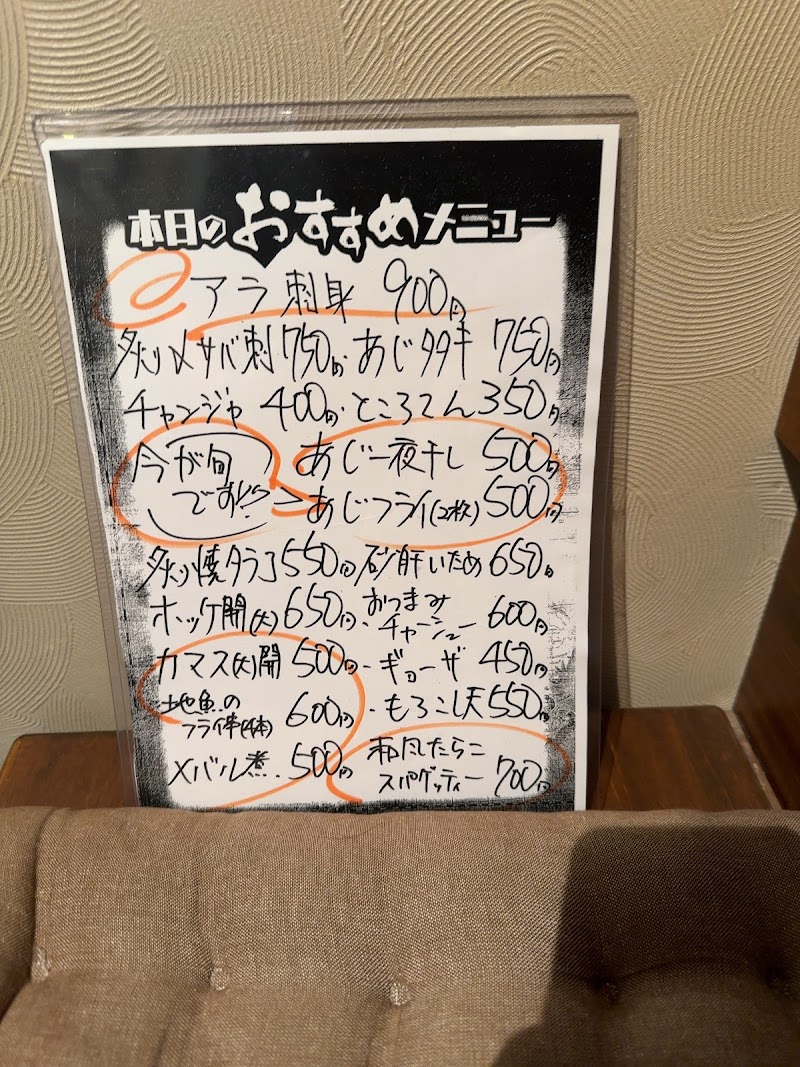 本日のおすすめメニュー
アラ刺身 900円
炙り〆サバ刺750円・あじタタキ 750円
チャンジャ 400円・ところてん350円
今が旬 あじ一夜干し 500円
です!! あじフライ(2枚)500円
炙り明太タラコ550円 砂肝いため650円
ホッケ開(大)650円・おつまみチャーシュー 600円
カマス(大)開 500円・ギョーザ 450円
地魚のフライ串(4本) 600円・もろこし天550円
メバル煮 500円 和風たらこスパゲッティー 700円